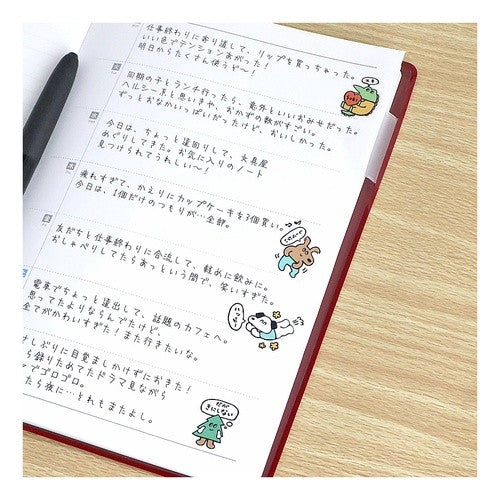 仕事終わりに寄り道して、リップを買っちゃった。
いい色でテンションあがった！
明日からたくさん使うぞ〜！
同期の子とランチ行ったら、意外といいおみせだった。
ヘルシー系と思いきや、おかずの数がすごい。
ずっとおなかいっぱいだったけど、おいしかった。
今日は、ちょっと遠回りして、文具屋
めぐりしてきた。お気に入りのノート
見つけられてうれしい〜！
疲れすぎて、かえりにカップケーキを3個買い。
今日は、1個だけのつもりが…全部。
友だちと仕事終わりに合流して、軽めに飲みに。
おしゃべりしてたらあっという間で、笑いすぎた。
電車でちょっと遠出して、話題のカフェへ。
思ってたよりならんでたけど、
全てがかわいすぎた！また行きたいな。
さしぶりに目覚ましかけずにおきた！
ら録りためてたドラマ見ながら
でゴロゴロ。
たら夜に…それもまたよし。
だが
きにしない